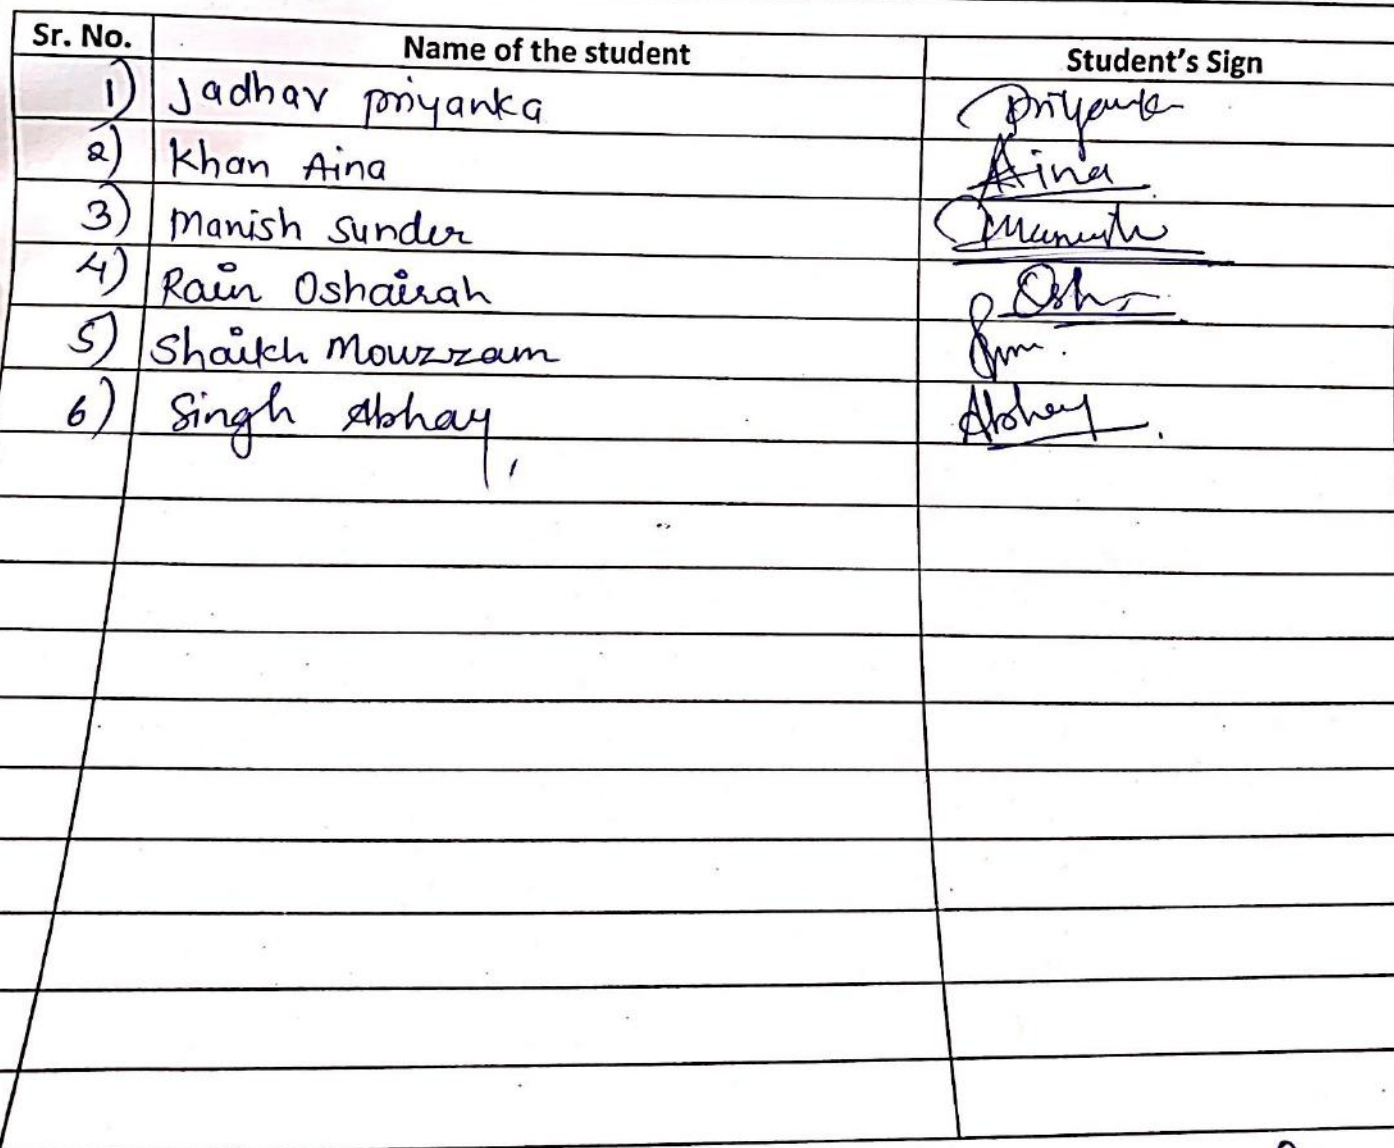 Sr. No. Name of the student Student's Sign
1) Jadhav Priyanka Priyanka
2) Khan Aina Aina
3) Manish Sunder Manish
4) Rain Oshairah
5) Shaikh Mouzzam
6) Singh Abhay Abhay